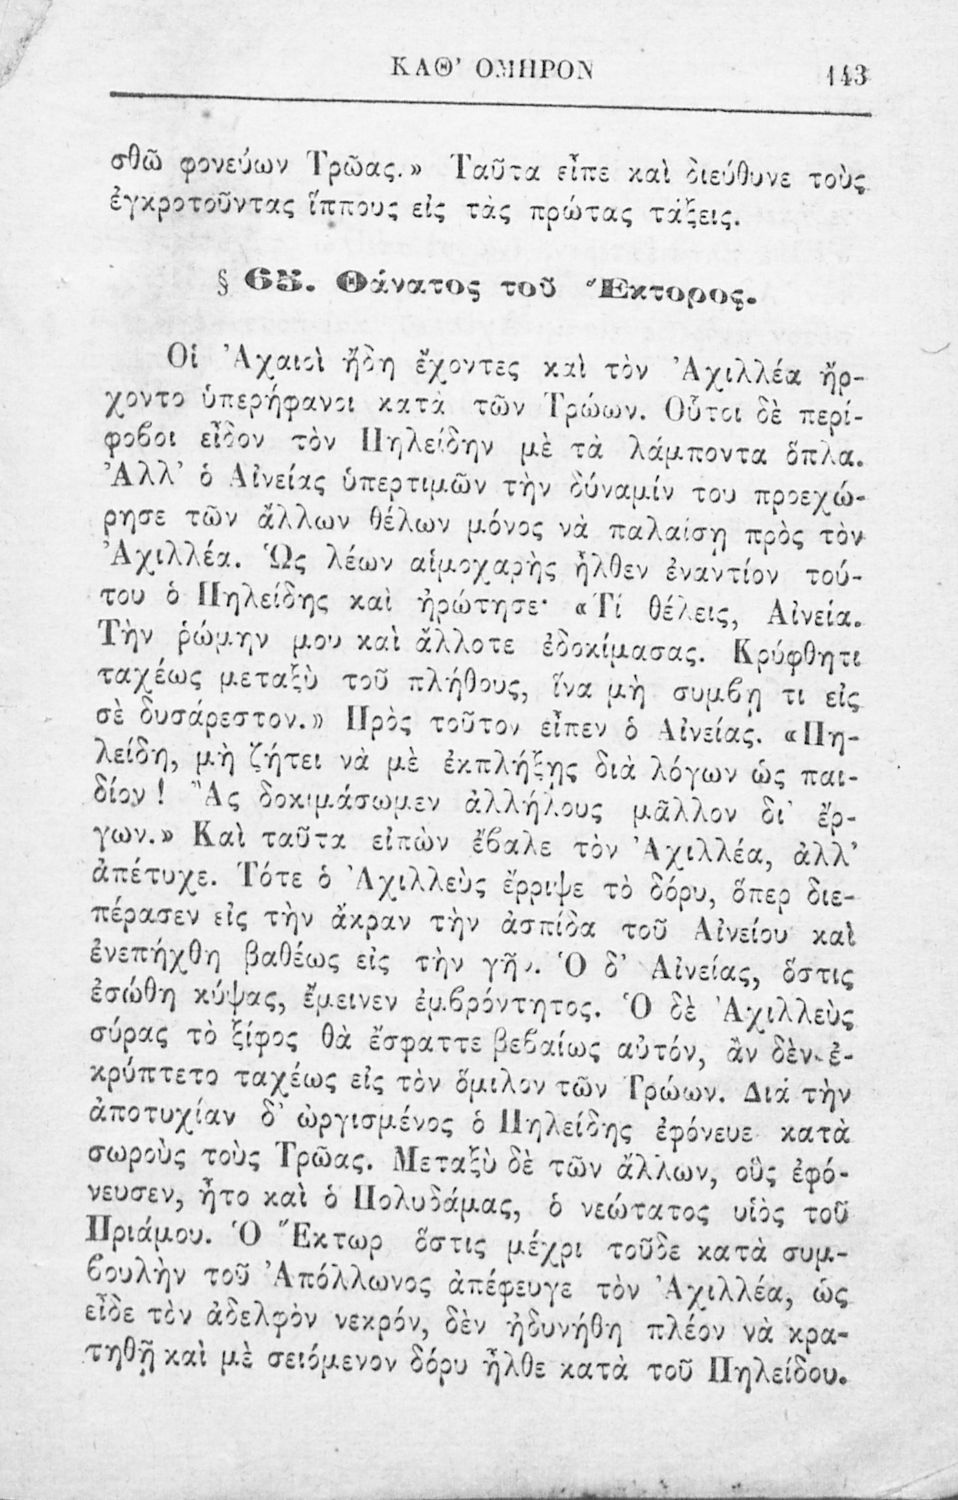 ΚΑΘ' ΟΜΗΡΟΝ 143
σθῶ φονεύων Τρῶας.» Ταῦτα εἶπε καὶ διεύθυνε τοὺς
ἐγκροτοῦντας ἵππους εἰς τὰς πρώτας τάξεις.
§ 65. Θάνατος τοῦ Ἕκτορος.
Οἱ Ἀχαιοὶ ἤδη ἔχοντες καὶ τὸν Ἀχιλλέα ἤρ-
χοντο ὑπερήφανοι κατὰ τῶν Τρώων. Οὗτοι δὲ περί-
φοβοι εἶδον τὸν Πηλείδην μὲ τὰ λάμποντα ὅπλα.
Ἀλλ' ὁ Αἰνείας ὑπερτιμῶν τὴν δύναμίν του προεχώ-
ρησε τῶν ἄλλων θέλων μόνος νὰ παλαίσῃ πρὸς τὸν
Ἀχιλλέα. Ὡς λέων αἱμοχαρὴς ἦλθεν ἐναντίον τού-
του ὁ Πηλείδης καὶ ἠρώτησε· «Τί θέλεις, Αἰνεία.
Τὴν ῥώμην μου καὶ ἄλλοτε ἐδοκίμασας. Κρύφθητι
ταχέως μεταξὺ τοῦ πλήθους, ἵνα μὴ συμβῇ τι εἰς
σὲ δυσάρεστον.» Πρὸς τοῦτον εἶπεν ὁ Αἰνείας. «Πη-
λείδη, μὴ ζήτει νὰ μὲ ἐκπλήξῃς διὰ λόγων ὡς παι-
δίον! Ἂς δοκιμάσωμεν ἀλλήλους μᾶλλον δι' ἔρ-
γων.» Καὶ ταῦτα εἰπὼν ἔβαλε τὸν Ἀχιλλέα, ἀλλ'
ἀπέτυχε. Τότε ὁ Ἀχιλλεὺς ἔρριψε τὸ δόρυ, ὅπερ διε-
πέρασεν εἰς τὴν ἄκραν τὴν ἀσπίδα τοῦ Αἰνείου καὶ
ἐνεπήχθη βαθέως εἰς τὴν γῆν. Ὁ δ' Αἰνείας, ὅστις
ἐσώθη κύψας, ἔμεινεν ἐμβρόντητος. Ὁ δὲ Ἀχιλλεὺς
σύρας τὸ ξίφος θὰ ἔσφαττε βεβαίως αὐτόν, ἂν δὲν ἐ-
κρύπτετο ταχέως εἰς τὸν ὅμιλον τῶν Τρώων. Διὰ τὴν
ἀποτυχίαν δ' ὠργισμένος ὁ Πηλείδης ἐφόνευε κατὰ
σωροὺς τοὺς Τρῶας. Μεταξὺ δὲ τῶν ἄλλων, οὓς ἐφό-
νευσεν, ἦτο καὶ ὁ Πολυδάμας, ὁ νεώτατος υἱὸς τοῦ
Πριάμου. Ὁ Ἕκτωρ ὅστις μέχρι τοῦδε κατὰ συμ-
βουλὴν τοῦ Ἀπόλλωνος ἀπέφευγε τὸν Ἀχιλλέα, ὡς
εἶδε τὸν ἀδελφὸν νεκρόν, δὲν ἠδυνήθη πλέον νὰ κρα-
τηθῇ καὶ μὲ σειόμενον δόρυ ἦλθε κατὰ τοῦ Πηλείδου.